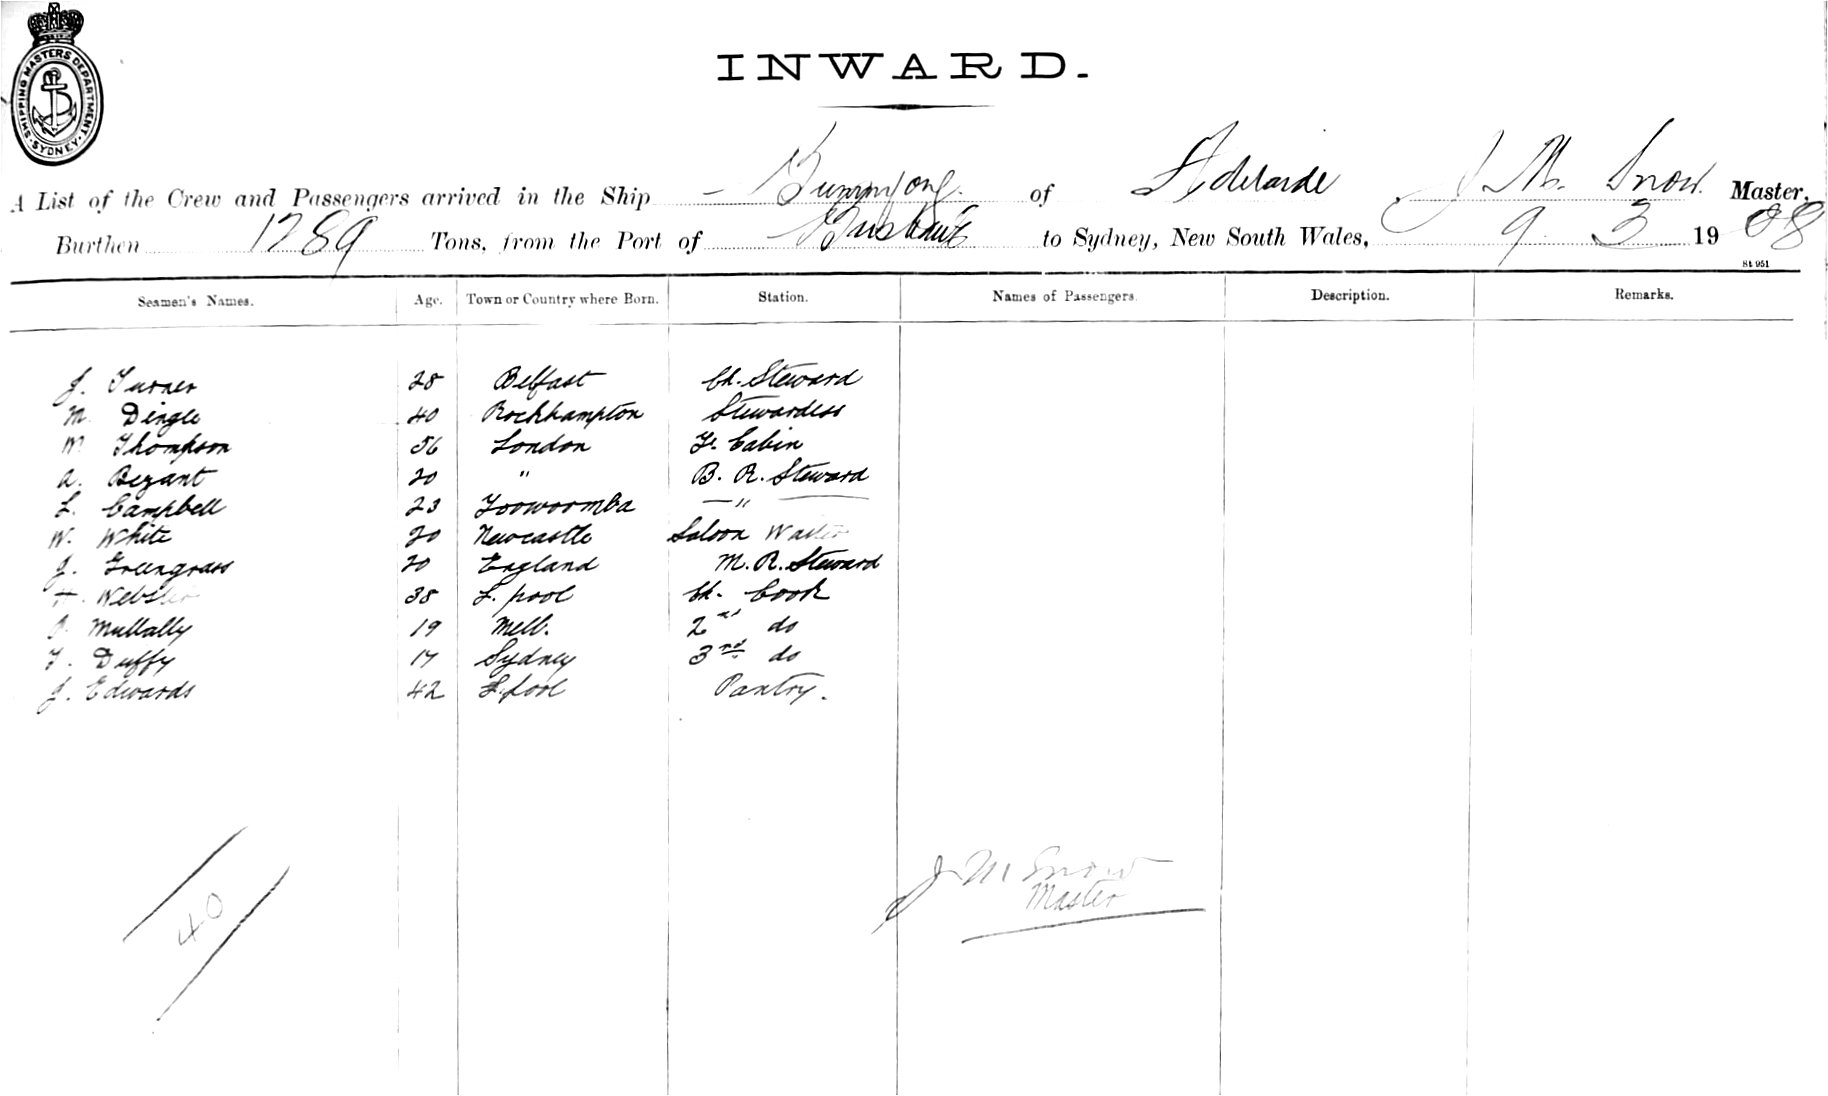 SHIPPING MASTERS DEPARTMENT. SYDNEY.
INWARD.
A List of the Crew and Passengers arrived in the Ship of Adelaide J M. Snow Master,
Burthen 1789 Tons, from the Port of Brisbane to Sydney, New South Wales, 9 3 1908
St 951
Seamen's Names. Age. Town or Country where Born. Station. Names of Passengers. Description. Remarks.
J. Turner 28 Belfast Ch. Steward
M. Dingle 40 Rockhampton Stewardess
M Thompson 56 London F. Cabin
A. Bezant 20 " B. R. Steward
L. Campbell 23 Toowoomba — " —
W. White 20 Newcastle Saloon Waiter
J. Greengrass 20 England M. R. Steward
Webster 38 L. pool Ch. Cook
Mullally 19 Melb. 2nd do
T. Duffy 17 Sydney 3rd do
J. Edwards 42 L.pool Pantry.
J M Snow
Master
40